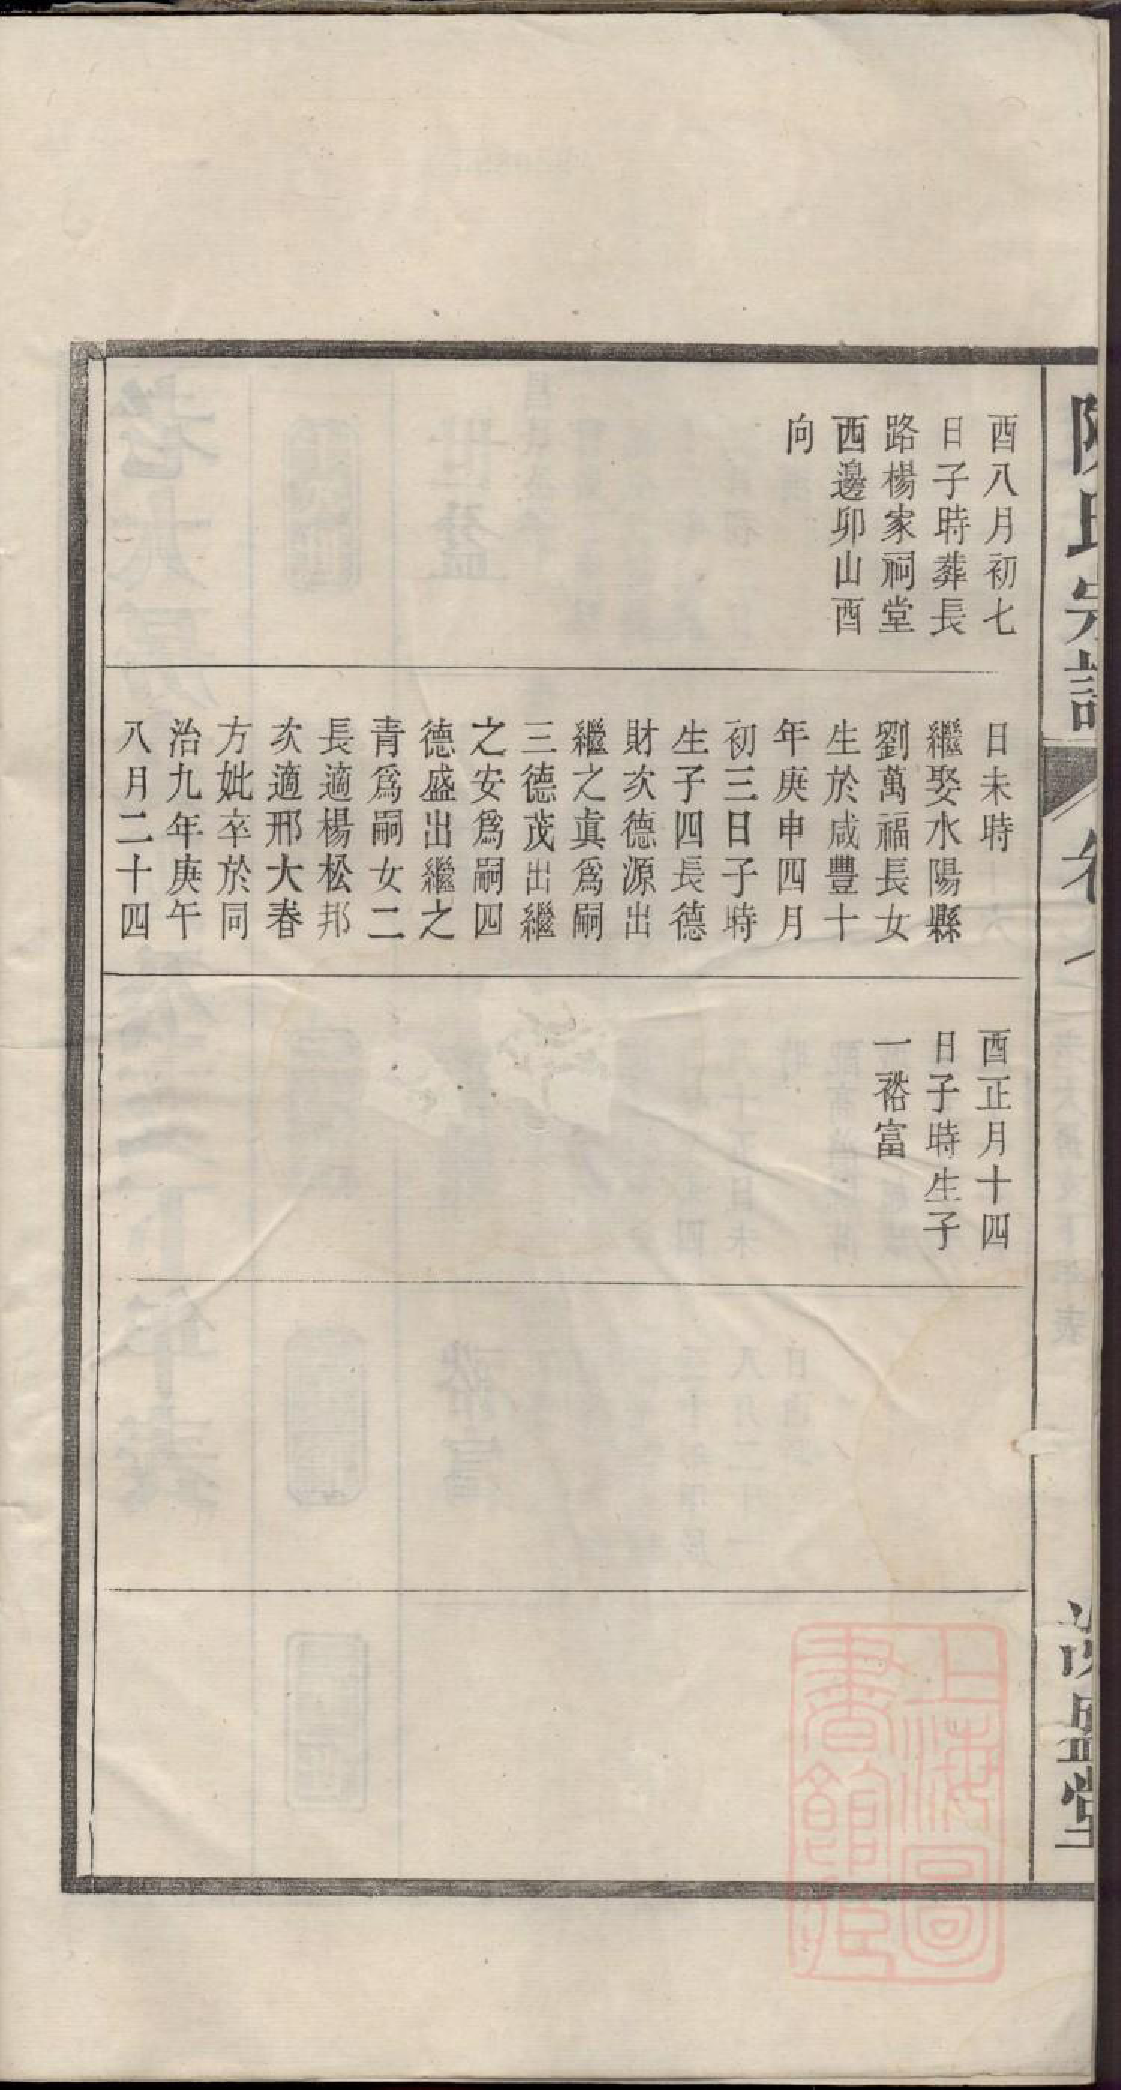 酉八月初七
日子時葬長
路楊家祠堂
西邊卯山酉
向
日未時
繼娶水陽縣
劉萬福長女
生於咸豐十
年庚申四月
初三日子時
生子四長德
財次德源出
繼之真爲嗣
三德茂出繼
之安爲嗣四
德盛出繼之
青爲嗣女二
長適楊松邦
次適邢大春
方妣卒於同
治九年庚午
八月二十四
酉正月十四
日子時生子
一裕富
上海圖
書館藏